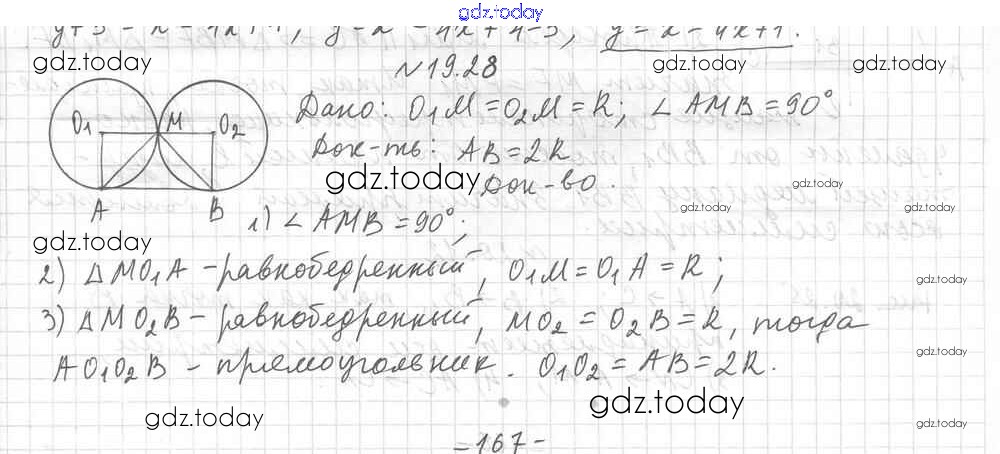 gdz.today
y+3 = x² - 4x + 4, y = x² - 4x + 4 - 3, y = x² - 4x + 1.
gdz.today gdz.today gdz.today
№ 19.28
O1 M O2
Дано: O1M = O2M = R; ∠AMB = 90°
Док-ть: AB = 2R
gdz.today Док-во. gdz.today
A B
1) ∠AMB = 90°; gdz.today gdz.today
gdz.today
2) △MO1A - равнобедренный, O1M = O1A = R; gdz.today
3) △MO2B - равнобедренный, MO2 = O2B = R, тогда
AO1O2B - прямоугольник. O1O2 = AB = 2R. gdz.today
gdz.today gdz.today gdz.today
- 167 -